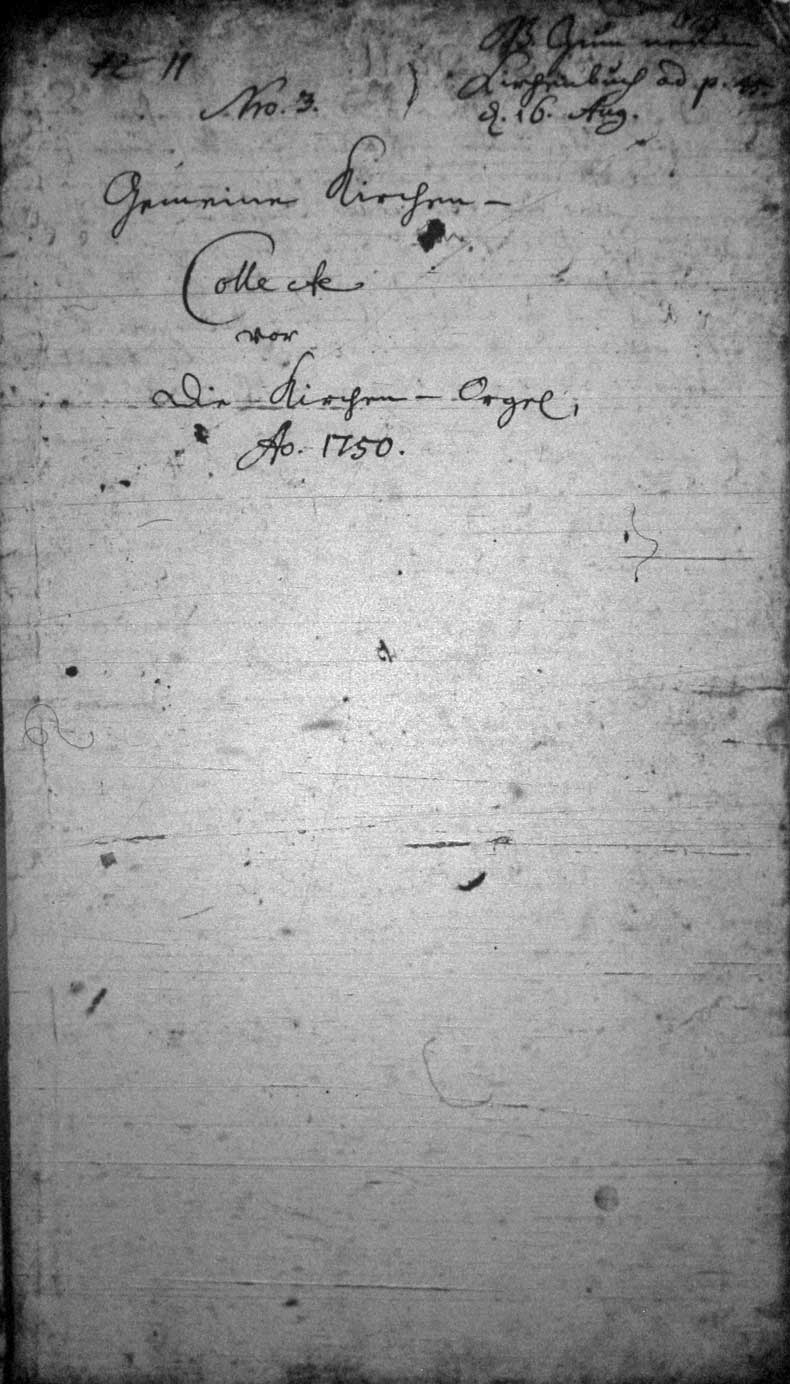 12 11
Zum neuen
Nro. 3. Kirchenbuch ad p.
d. 16. Aug.
Gemeine Kirchen-
Collecte
vor
Die Kirchen-Orgel,
Ao. 1750.